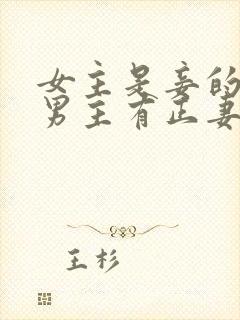 女主是妾的
男主有正妻
王杉